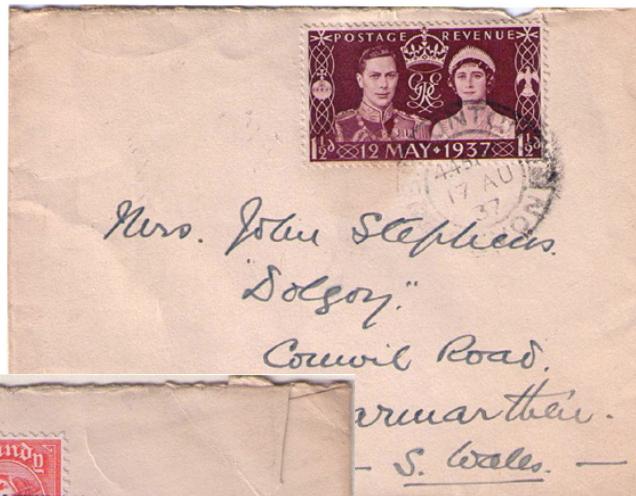 POSTAGE REVENUE
1½d 12 MAY 1937 1½d
17 AU
37
Mrs. John Stephens.
"Dolgoy."
Conwil Road.
armarthen.
— S. Wales. —